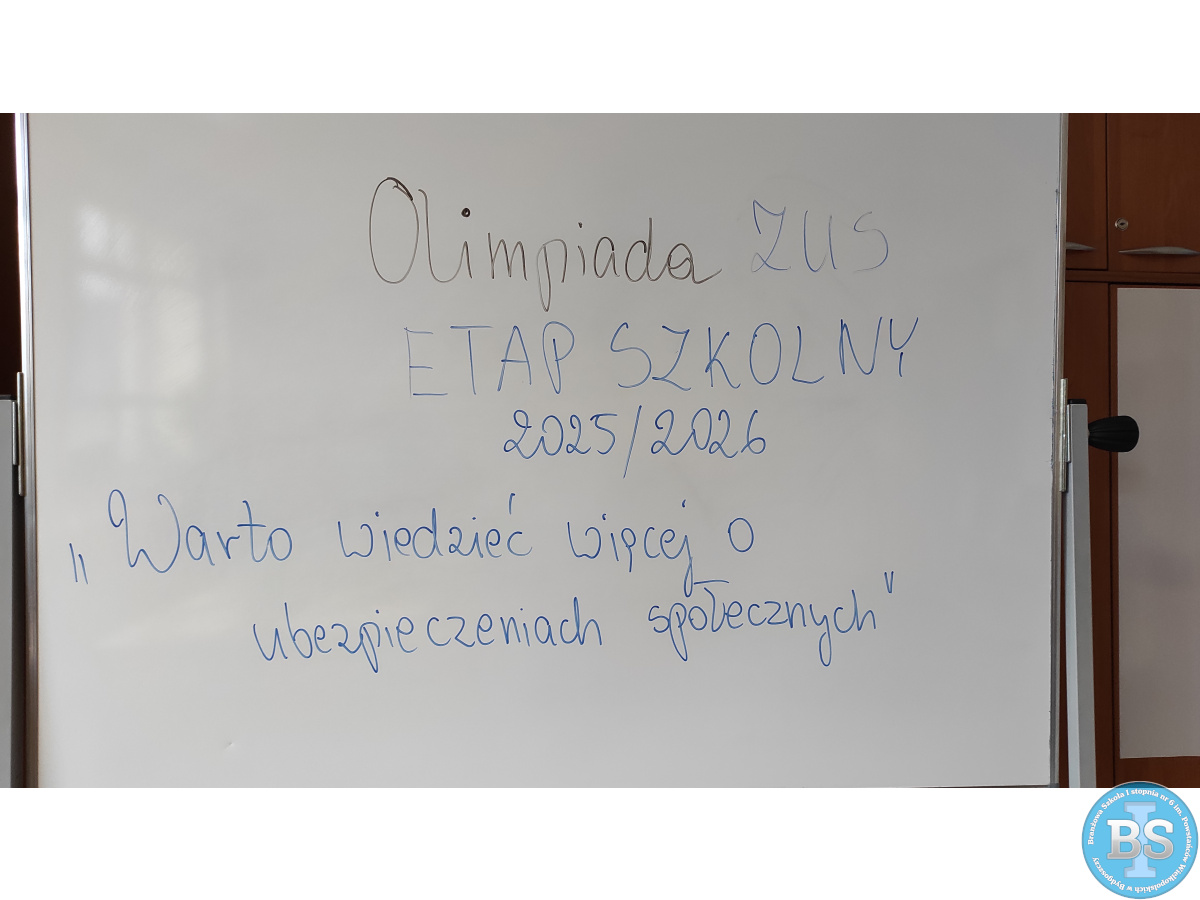 Olimpiada ZUS
ETAP SZKOLNY
2025/2026
„Warto wiedzieć więcej o
ubezpieczeniach społecznych"
Branżowa Szkoła I stopnia nr 6 im. Powstańców Wielkopolskich w Bydgoszczy
I
BS